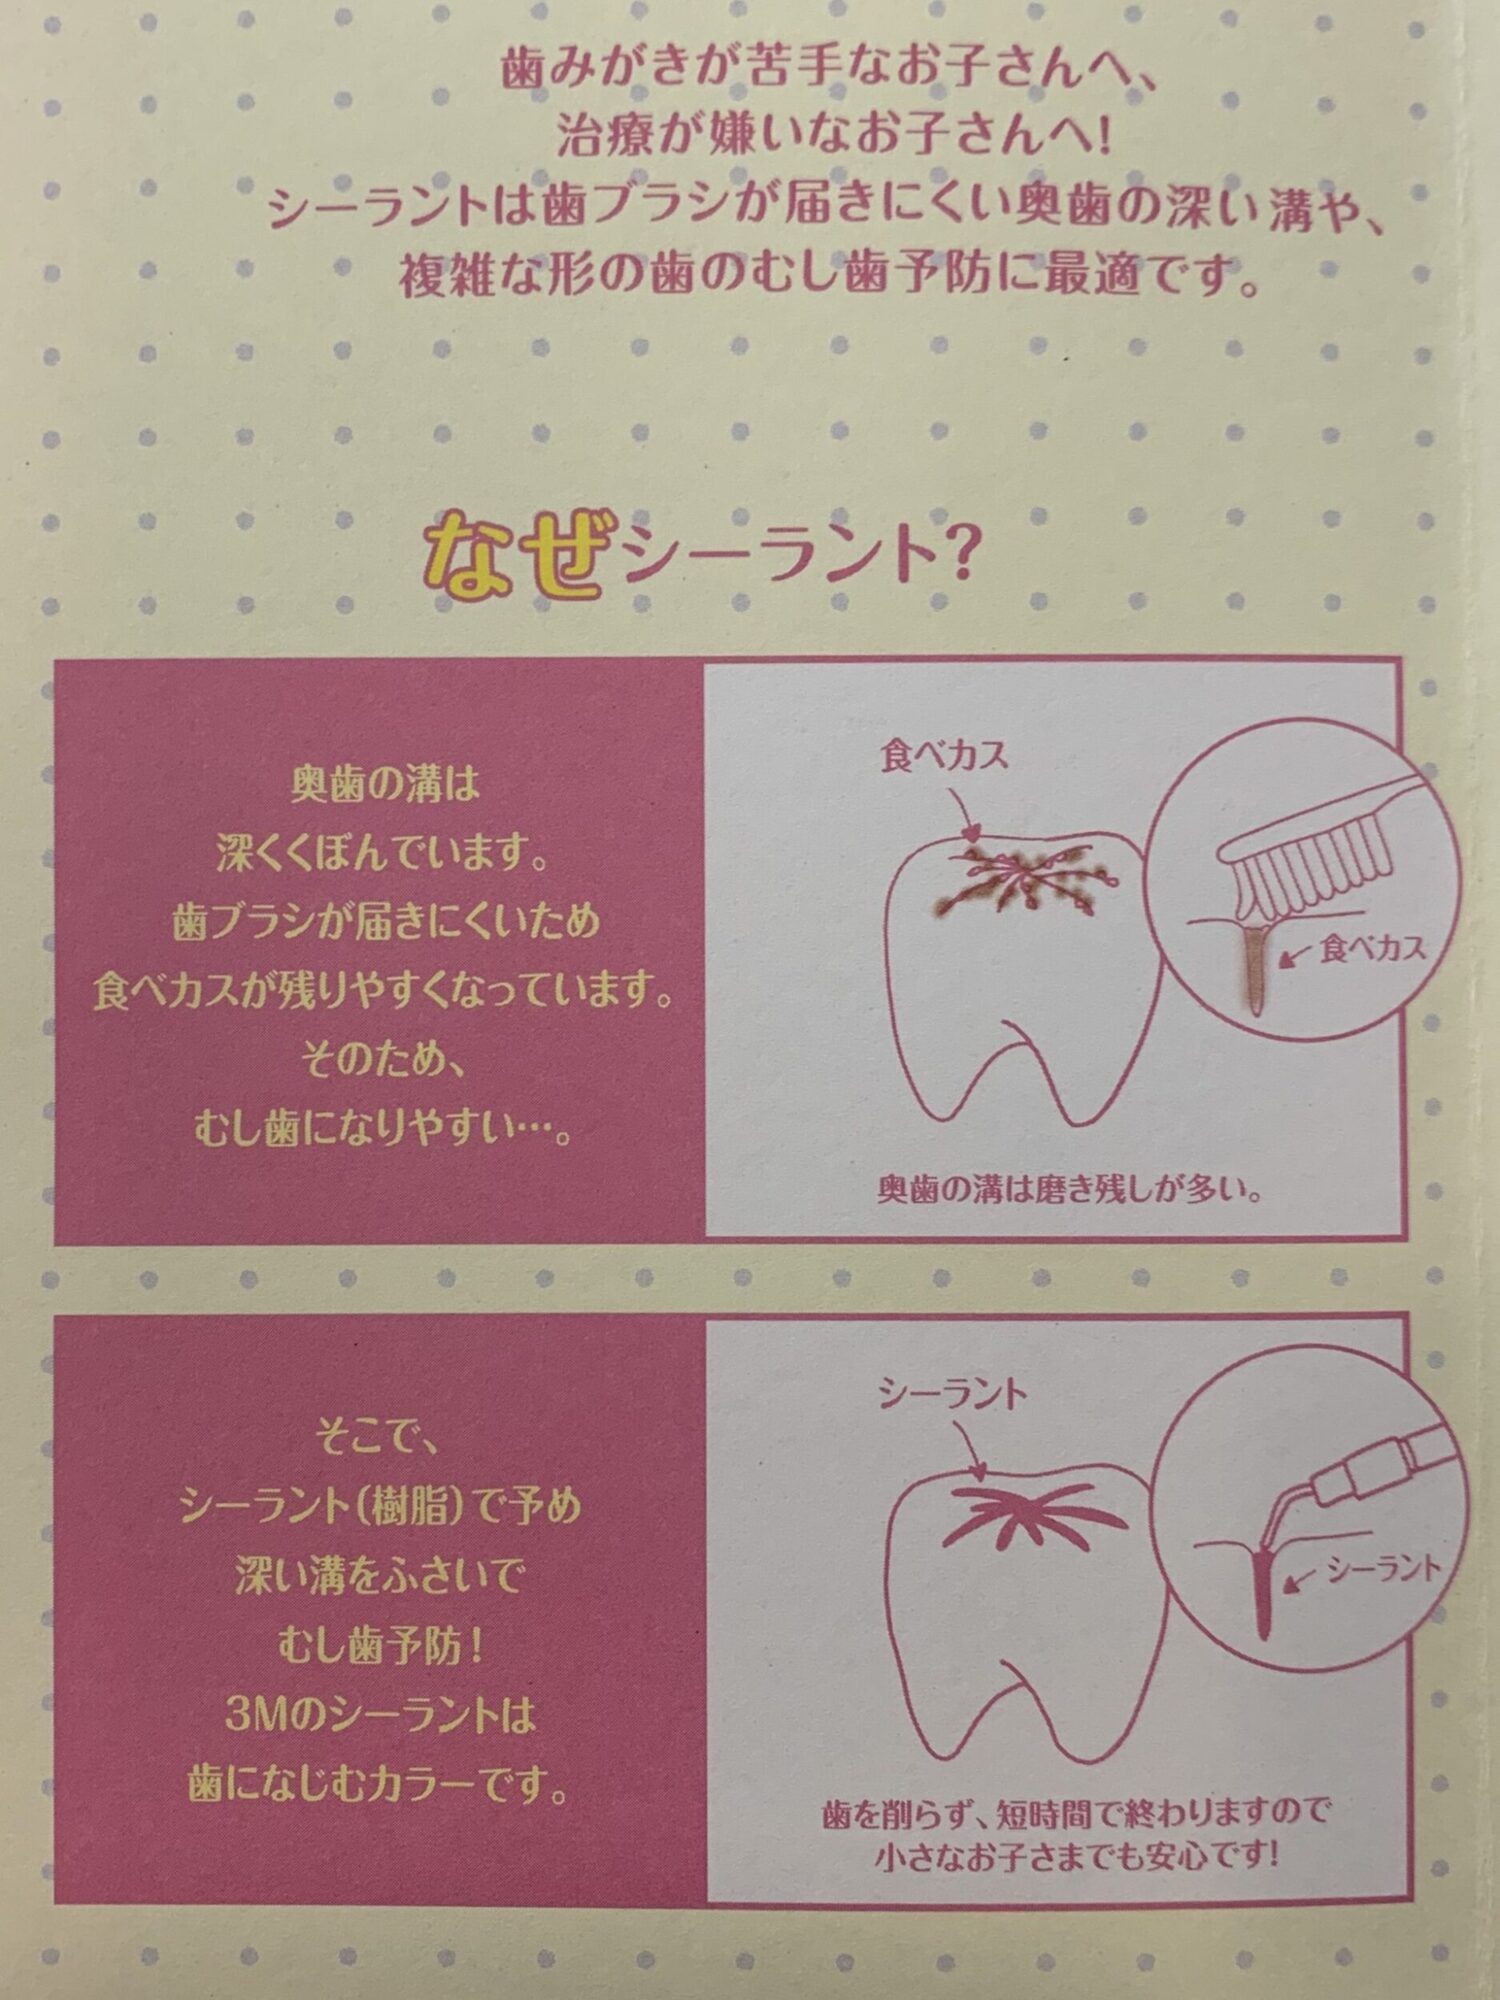 歯みがきが苦手なお子さんへ、
治療が嫌いなお子さんへ!
シーラントは歯ブラシが届きにくい奥歯の深い溝や、
複雑な形の歯のむし歯予防に最適です。
なぜシーラント?
奥歯の溝は
深くくぼんでいます。
歯ブラシが届きにくいため
食べカスが残りやすくなっています。
そのため、
むし歯になりやすい…。
食べカス
食べカス
奥歯の溝は磨き残しが多い。
そこで、
シーラント(樹脂)で予め
深い溝をふさいで
むし歯予防!
3Mのシーラントは
歯になじむカラーです。
シーラント
シーラント
歯を削らず、短時間で終わりますので
小さなお子さまでも安心です!